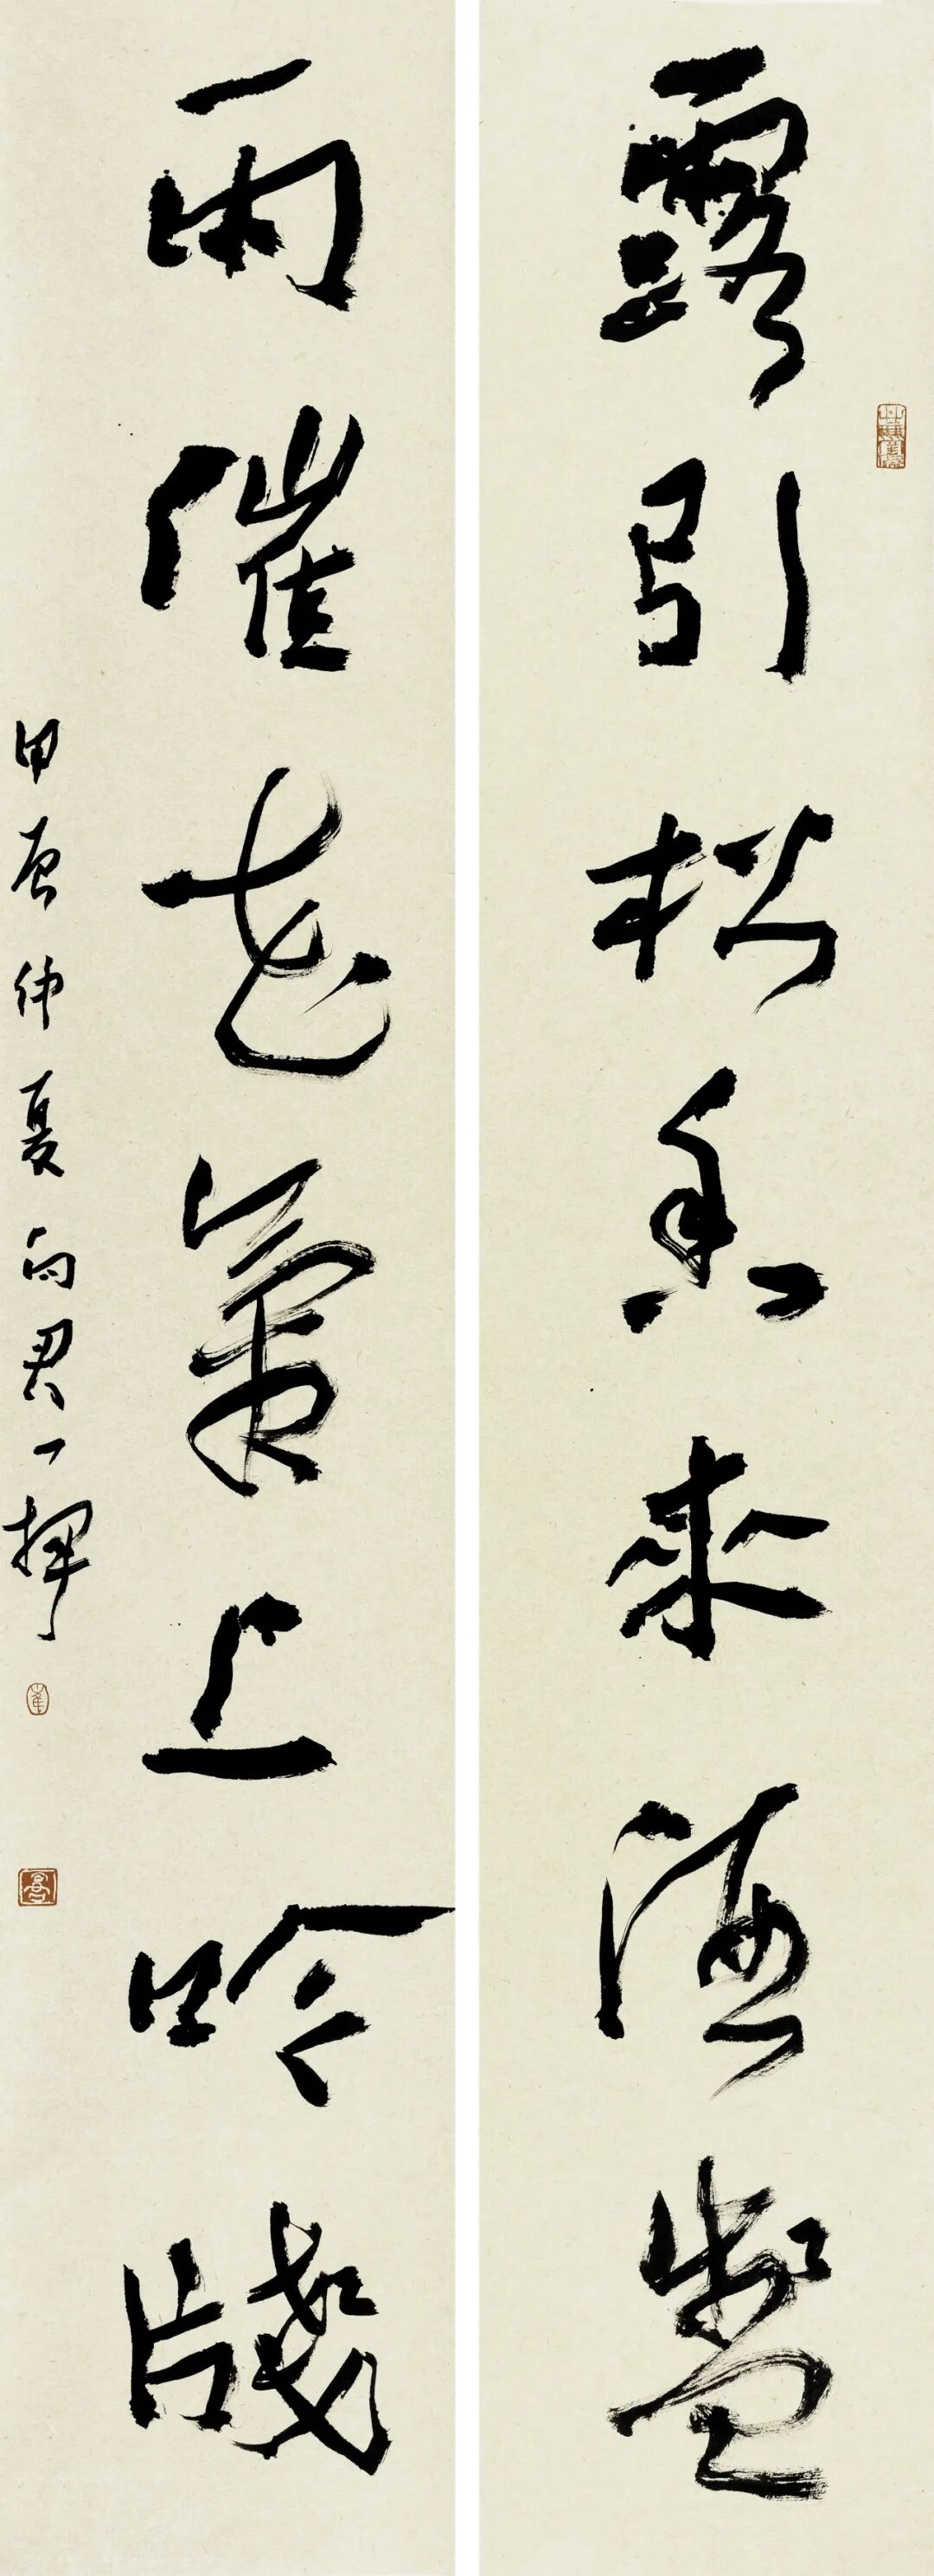 露引松香來酒盞
雨催花氣上吟牋
甲辰仲夏向君一揮